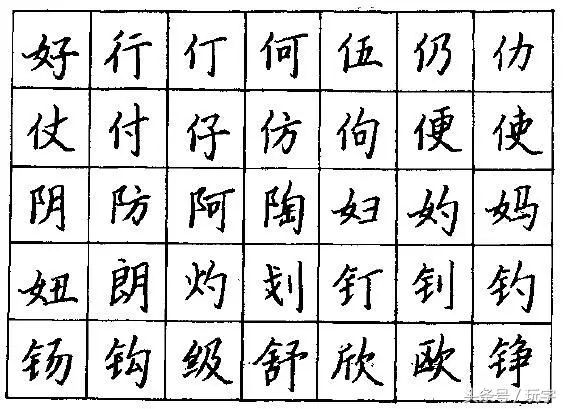 好行仃何伍仍仂
仗付仔仿佝便使
阴防阿陶妇妁妈
妞朗灼划钉钊钓
钖钩级舒欣欧铮
头条号/玩字